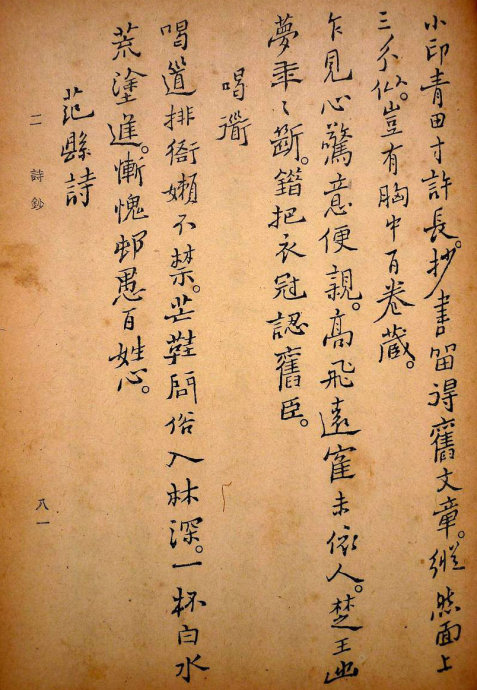 小印青田寸許長。抄書留得舊文章。縱然面上
三分似。豈有胸中百卷藏。
乍見心驚意便親。高飛遠寉未依人。楚王幽
夢年々斷。錯把衣冠認舊臣。
喝衟
喝道排衙嬾不禁。芒鞵問俗入林深。一杯白水
荒塗進。慚愧邨愚百姓心。
范縣詩
二 詩鈔 八一